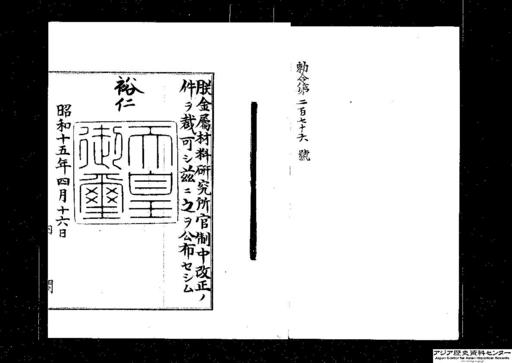 勅令第二百七十六號
朕金屬材料硏究所官制中改正ノ
件ヲ裁可シ茲ニ之ヲ公布セシム
裕仁
天皇御璽
昭和十五年四月十六日
アジア歴史資料センター
Japan Center for Asian Historical Records